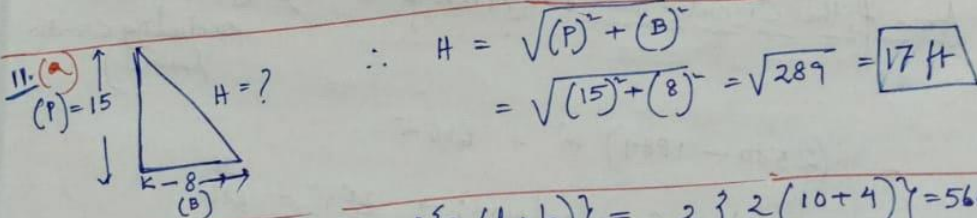 11. (a)
(P) = 15
H = ?
K - 8 →
(B)
∴ H = √(P)² + (B)²
= √(15)² + (8)² = √289 = 17 ft
2 (10+4)} = 56